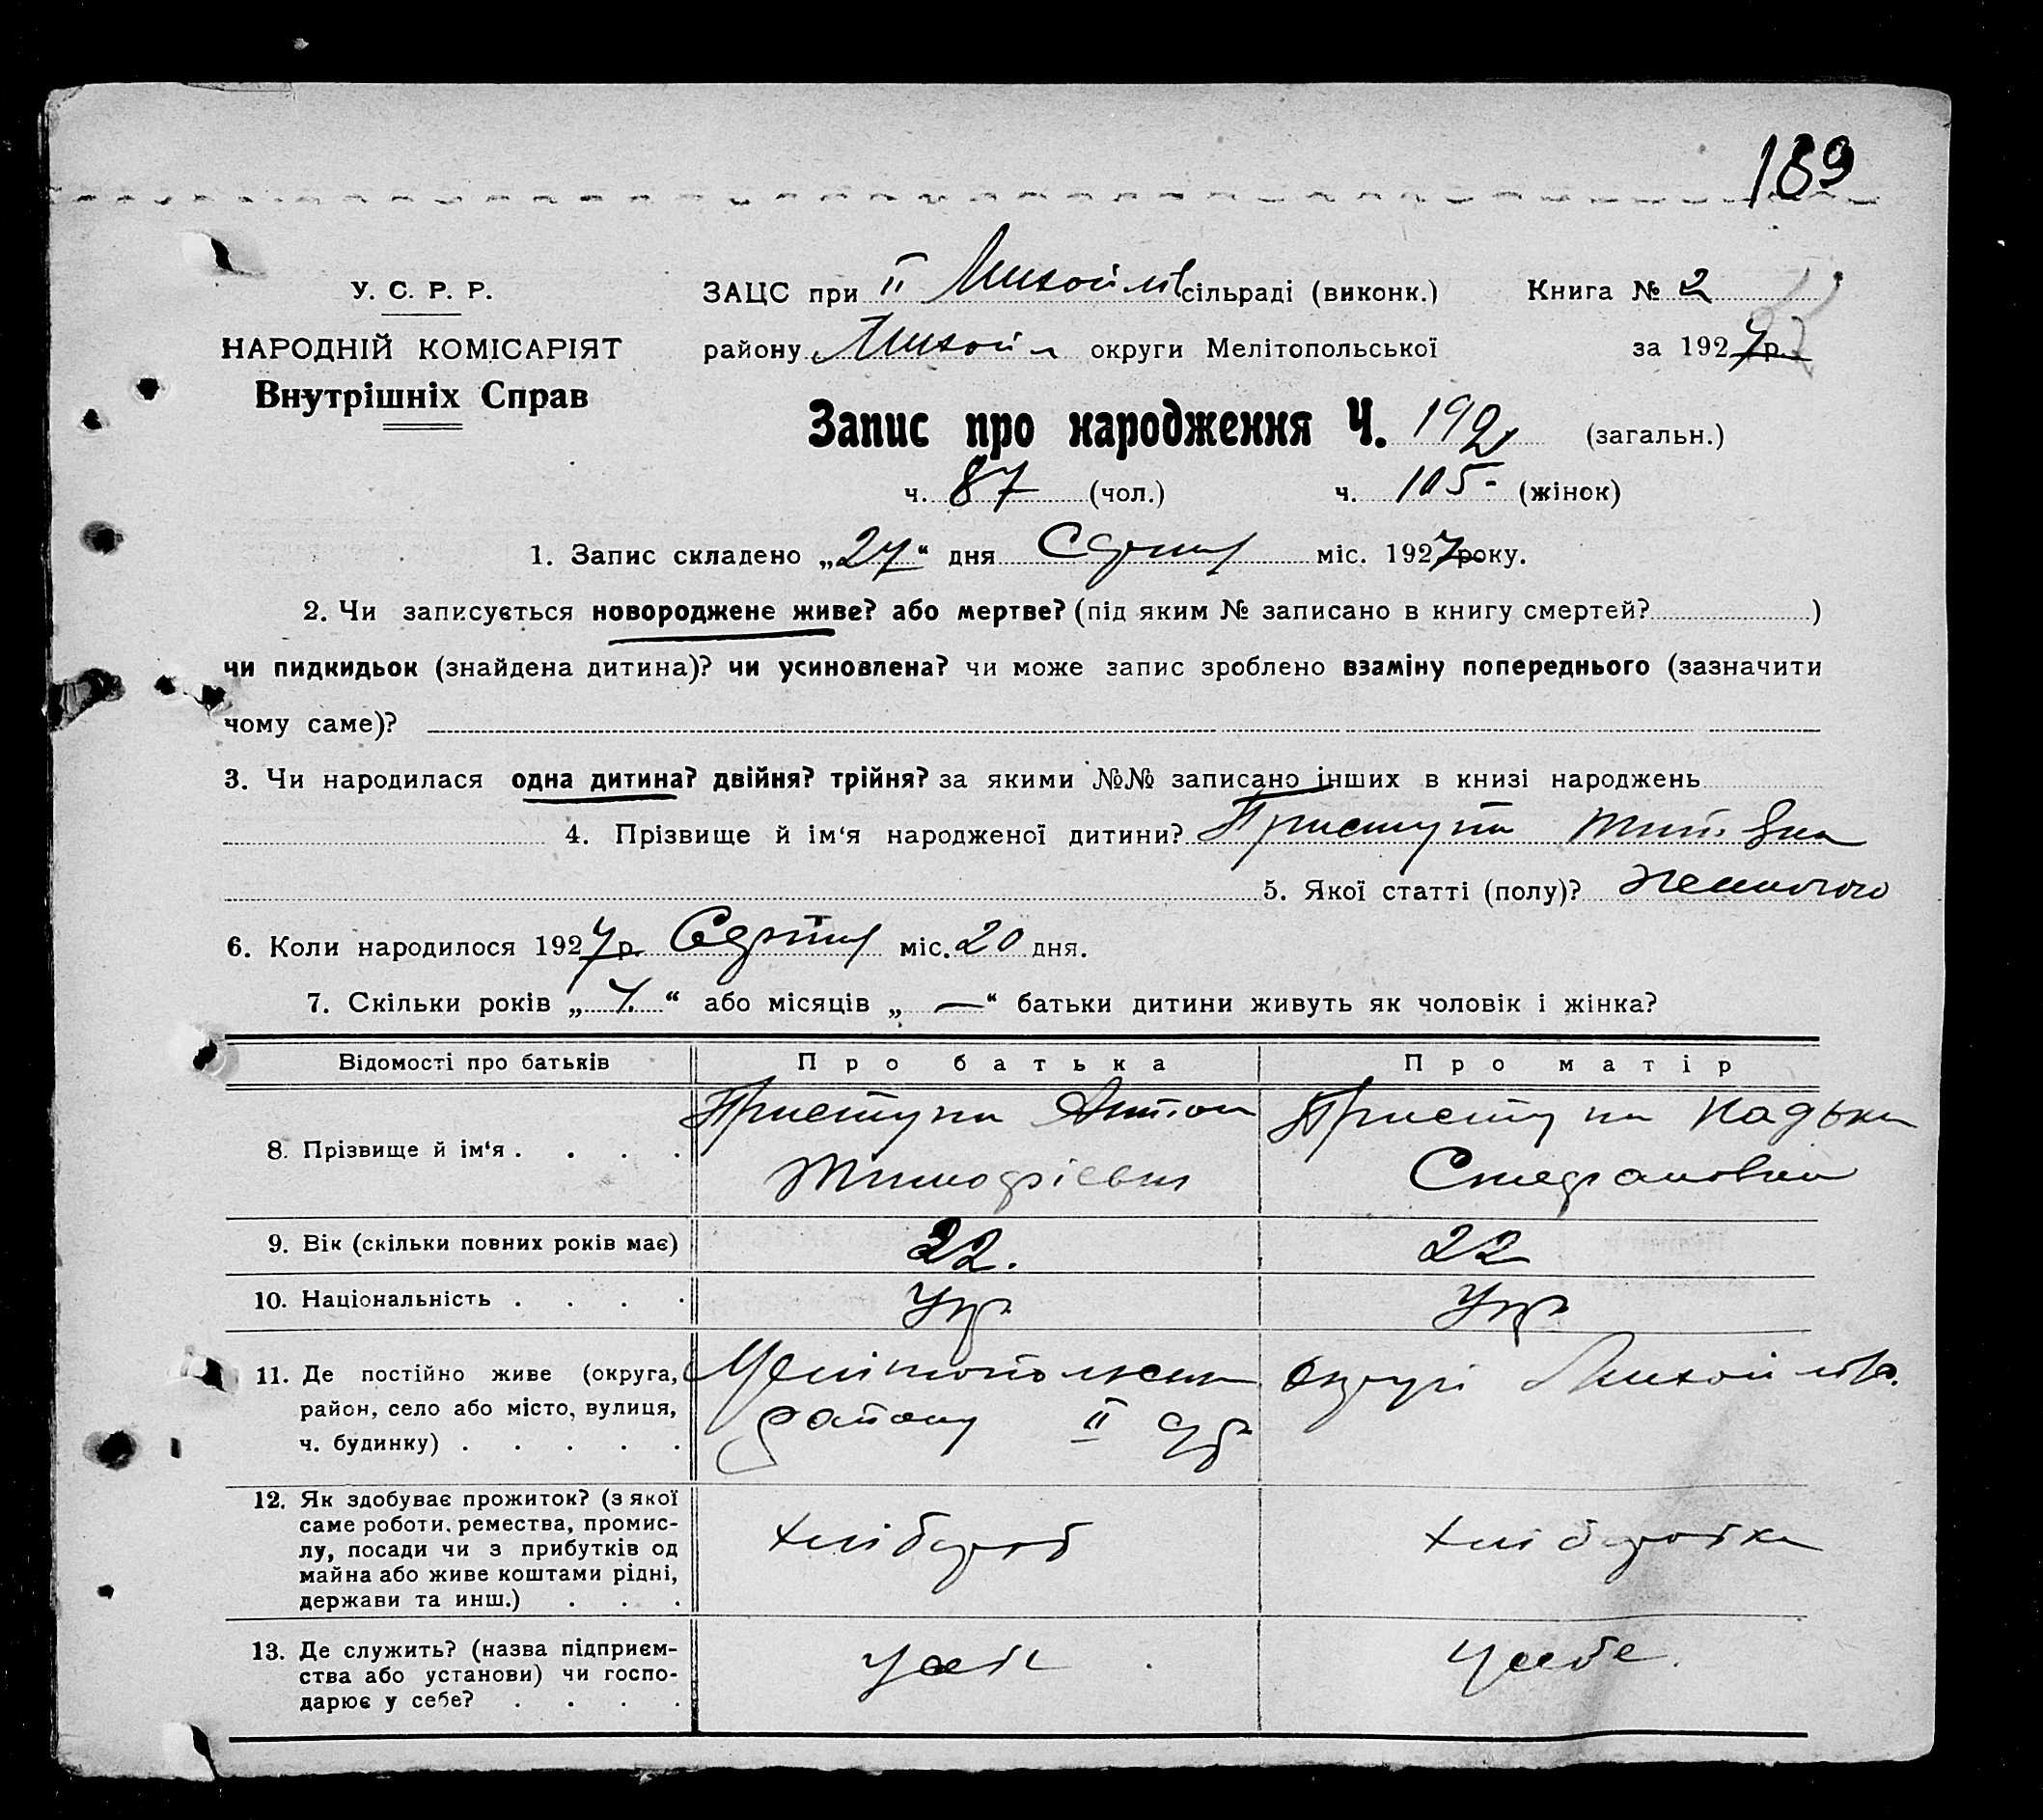 189
У. С. Р. Р.
НАРОДНІЙ КОМІСАРІЯТ
Внутрішніх Справ
ЗАЦС при II Михайлів сільраді (виконк.) Книга № 2
району Михайл округи Мелітопольської за 1927 р.
Запис про народження Ч. 192 (загальн.)
ч. 87 (чол.) ч. 105 - (жінок)
1. Запис складено „27“ дня Серпня міс. 1927 року.
2. Чи записується новороджене живе? або мертве? (під яким № записано в книгу смертей? )
чи пидкидьок (знайдена дитина)? чи усиновлена? чи може запис зроблено взаміну попереднього (зазначити
чому саме)?
3. Чи народилася одна дитина? двійня? трійня? за якими №№ записано інших в книзі народжень
4. Прізвище й ім‘я народженої дитини? Приступа
5. Якої статті (полу)? женского
6. Коли народилося 1927 р. Серпня міс. 20 дня.
7. Скільки років „7.“ або місяців „—“ батьки дитини живуть як чоловік і жінка?
Відомості про батьків Про батька Про матір
8. Прізвище й ім‘я . . . . Приступа Антон Приступа Надька
Тимофіевич Стефановна
9. Вік (скільки повних років має) 22. 22
10. Національність . . . . Укр Укр
11. Де постійно живе (округа, Мелітопольськ округи Михайлів.
район, село або місто, вулиця, району II
ч. будинку) . . . . .
12. Як здобуває прожиток? (з якої
саме роботи, ремества, промис-
лу, посади чи з прибутків од хлібороб хліборобка
майна або живе коштами рідні,
держави та инш.) . . .
13. Де служить? (назва підприєм-
ства або установи) чи госпо- у себе.
дарює у себе? . . . .